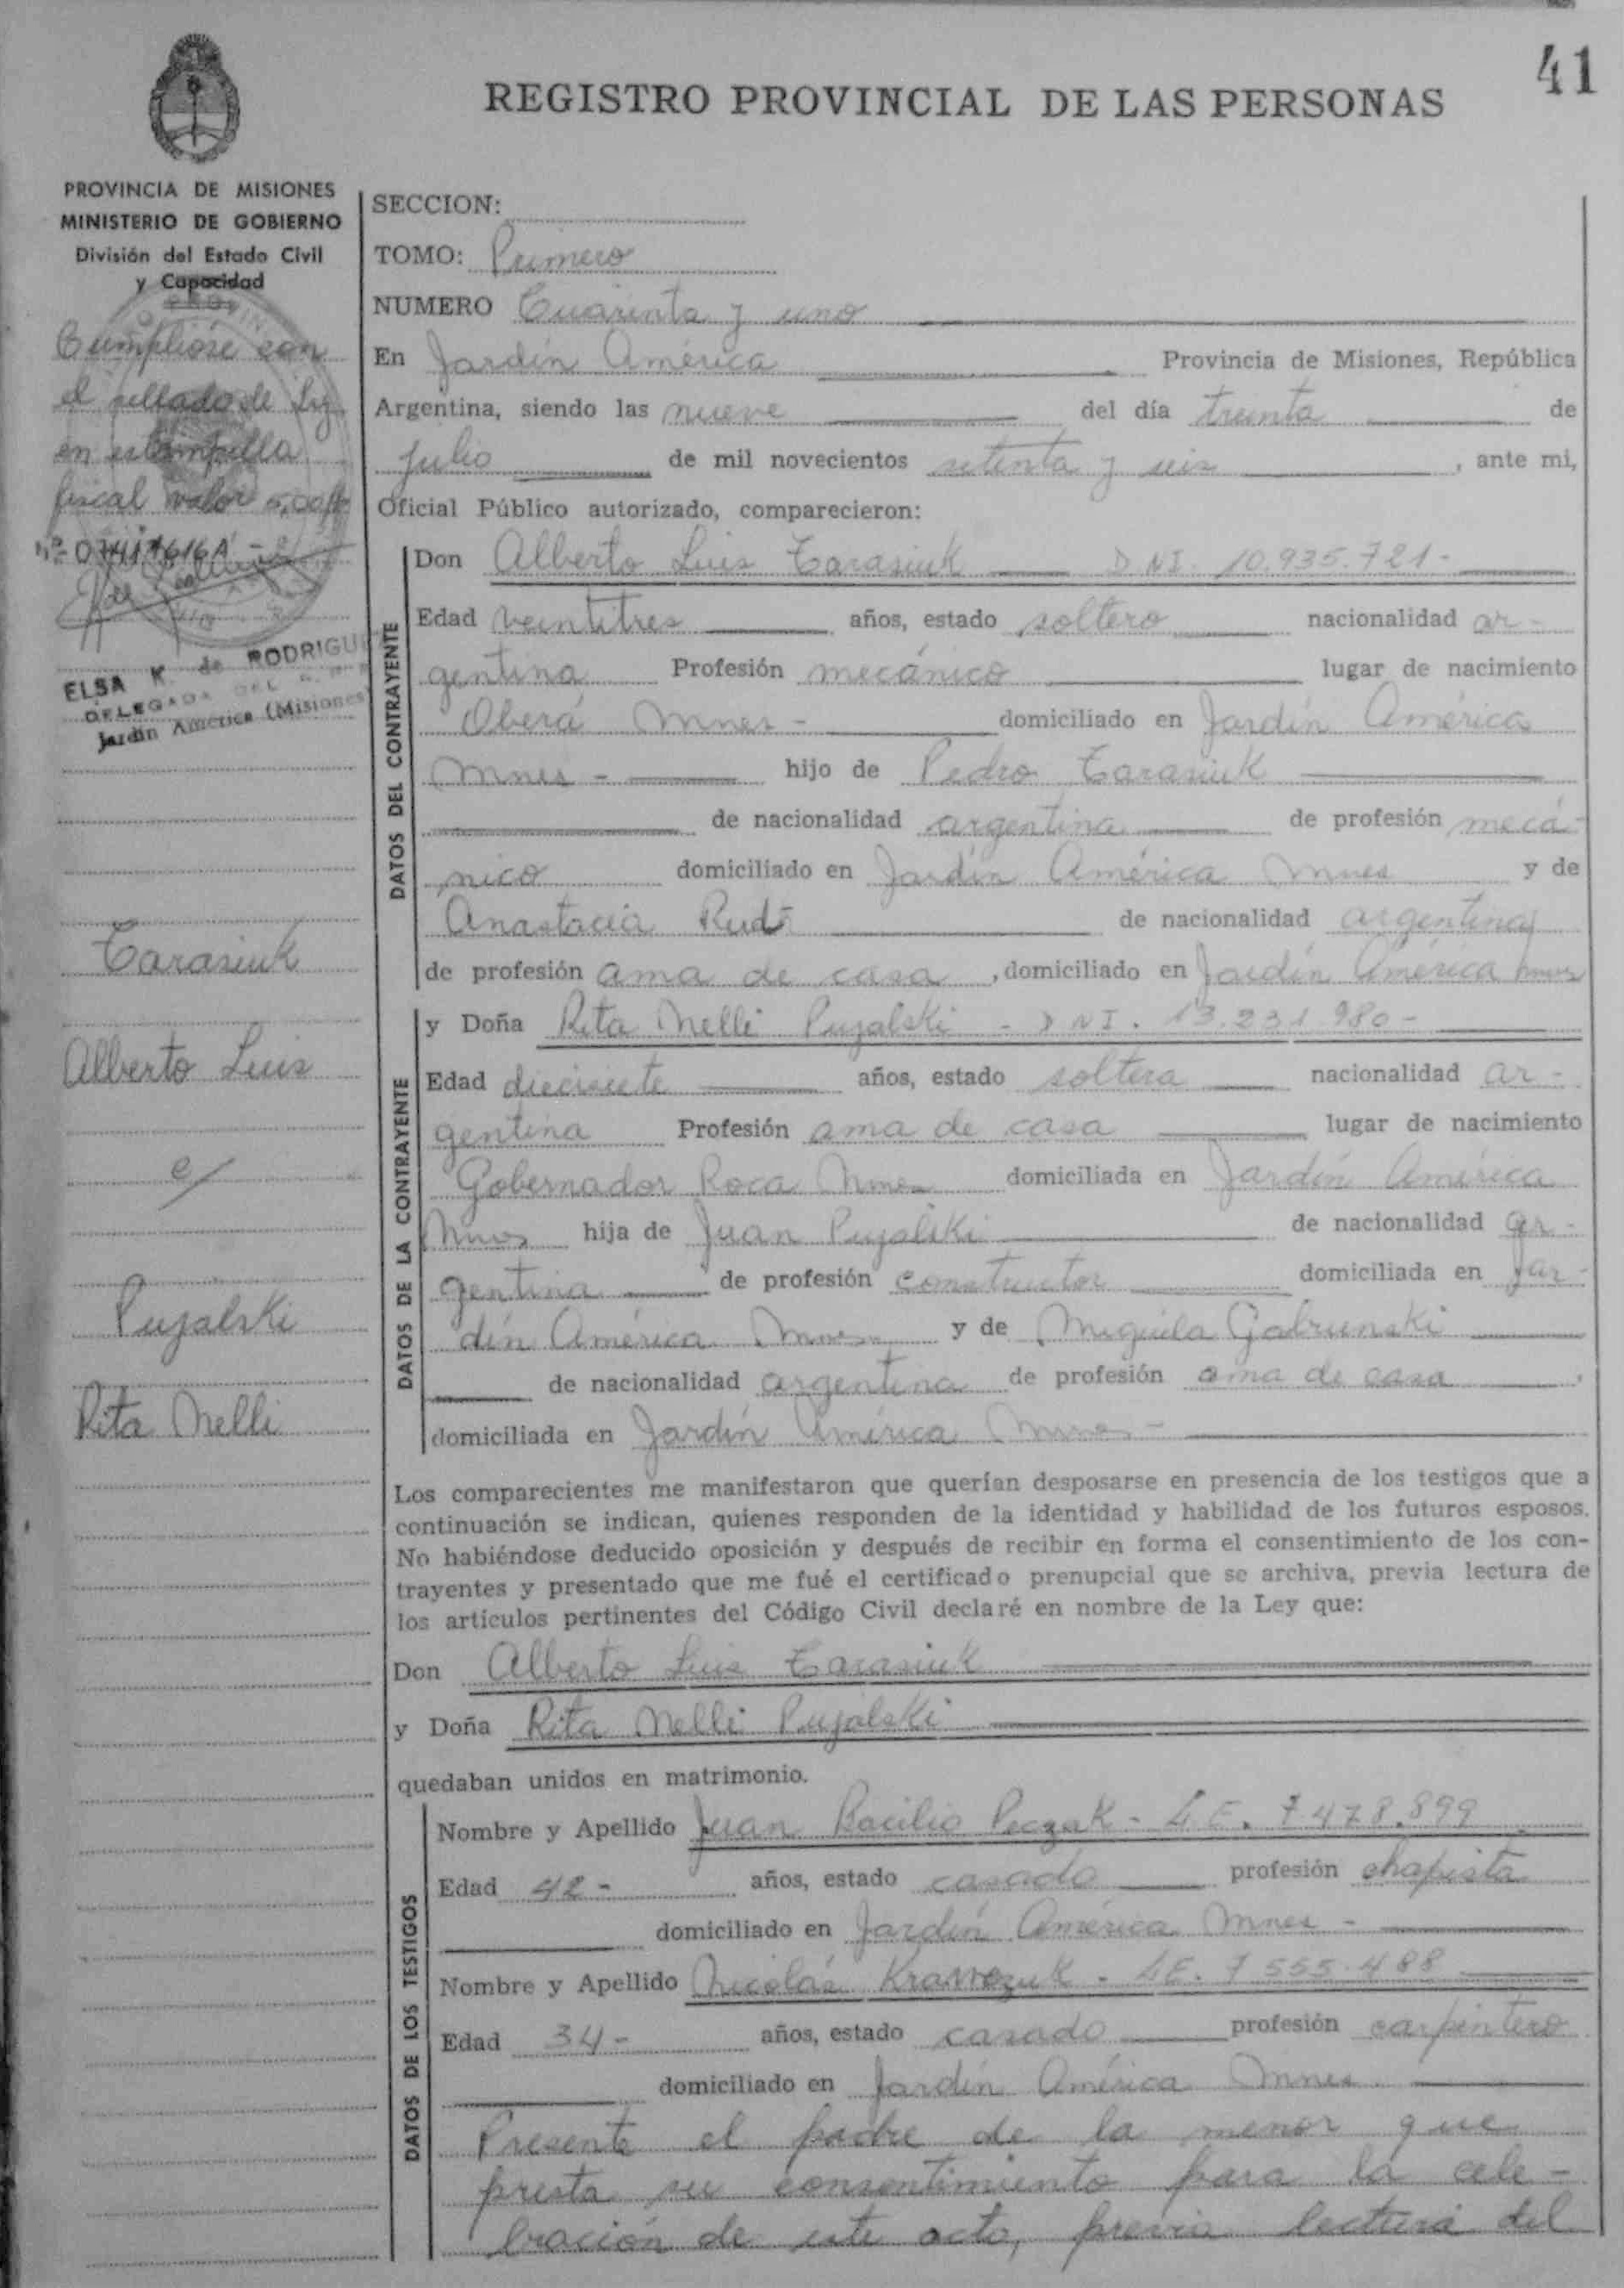 41
REGISTRO PROVINCIAL DE LAS PERSONAS
PROVINCIA DE MISIONES
MINISTERIO DE GOBIERNO
División del Estado Civil
y Capacidad
Cumplióse con
el sellado de Ley
en estampilla
fiscal valor
ELSA K. de RODRIGU
DELEGADA DEL
Jardin América (Misiones)
Tarasiuk
Alberto Luis
c/
Pujalski
Rita Nelli
SECCION:
TOMO: Primero
NUMERO Cuarenta y uno
En Jardín América Provincia de Misiones, República
Argentina, siendo las nueve del día treinta de
julio de mil novecientos setenta y seis, ante mi,
Oficial Público autorizado, comparecieron:
DATOS DEL CONTRAYENTE
Don Alberto Luis Tarasiuk D.N.I. 10.935.721-
Edad veintitres años, estado soltero nacionalidad ar-
gentina Profesión mecánico lugar de nacimiento
Oberá Mnes- domiciliado en Jardín América
Mnes- hijo de Pedro Tarasiuk
de nacionalidad argentina de profesión mecá-
nico domiciliado en Jardín América Mnes y de
Anastacia de nacionalidad argentina
de profesión ama de casa, domiciliado en Jardín América Mnes
DATOS DE LA CONTRAYENTE
y Doña Rita Nelli Pujalski - D.N.I. 13.231.980-
Edad diecisiete años, estado soltera nacionalidad ar-
gentina Profesión ama de casa lugar de nacimiento
Gobernador Roca Mnes domiciliada en Jardín América
Mnes hija de Juan Pujalski de nacionalidad ar-
gentina de profesión constructor domiciliada en Jar-
dín América Mnes y de Miguela Gabrunski
de nacionalidad argentina de profesión ama de casa,
domiciliada en Jardín América Mnes-
Los comparecientes me manifestaron que querían desposarse en presencia de los testigos que a
continuación se indican, quienes responden de la identidad y habilidad de los futuros esposos.
No habiéndose deducido oposición y después de recibir en forma el consentimiento de los con-
trayentes y presentado que me fué el certificado prenupcial que se archiva, previa lectura de
los artículos pertinentes del Código Civil declaré en nombre de la Ley que:
Don Alberto Luis Tarasiuk
y Doña Rita Nelli Pujalski
quedaban unidos en matrimonio.
DATOS DE LOS TESTIGOS
Nombre y Apellido Juan Bacilio Peczak - L.E. 7.478.899
Edad 42- años, estado casado profesión chapista
domiciliado en Jardín América Mnes-
Nombre y Apellido Nicolás Krawczuk - L.E. 7.555.488
Edad 34- años, estado casado profesión carpintero
domiciliado en Jardín América Mnes
Presente el padre de la menor que
presta su consentimiento para la cele-
bración de este acto, previa lectura del